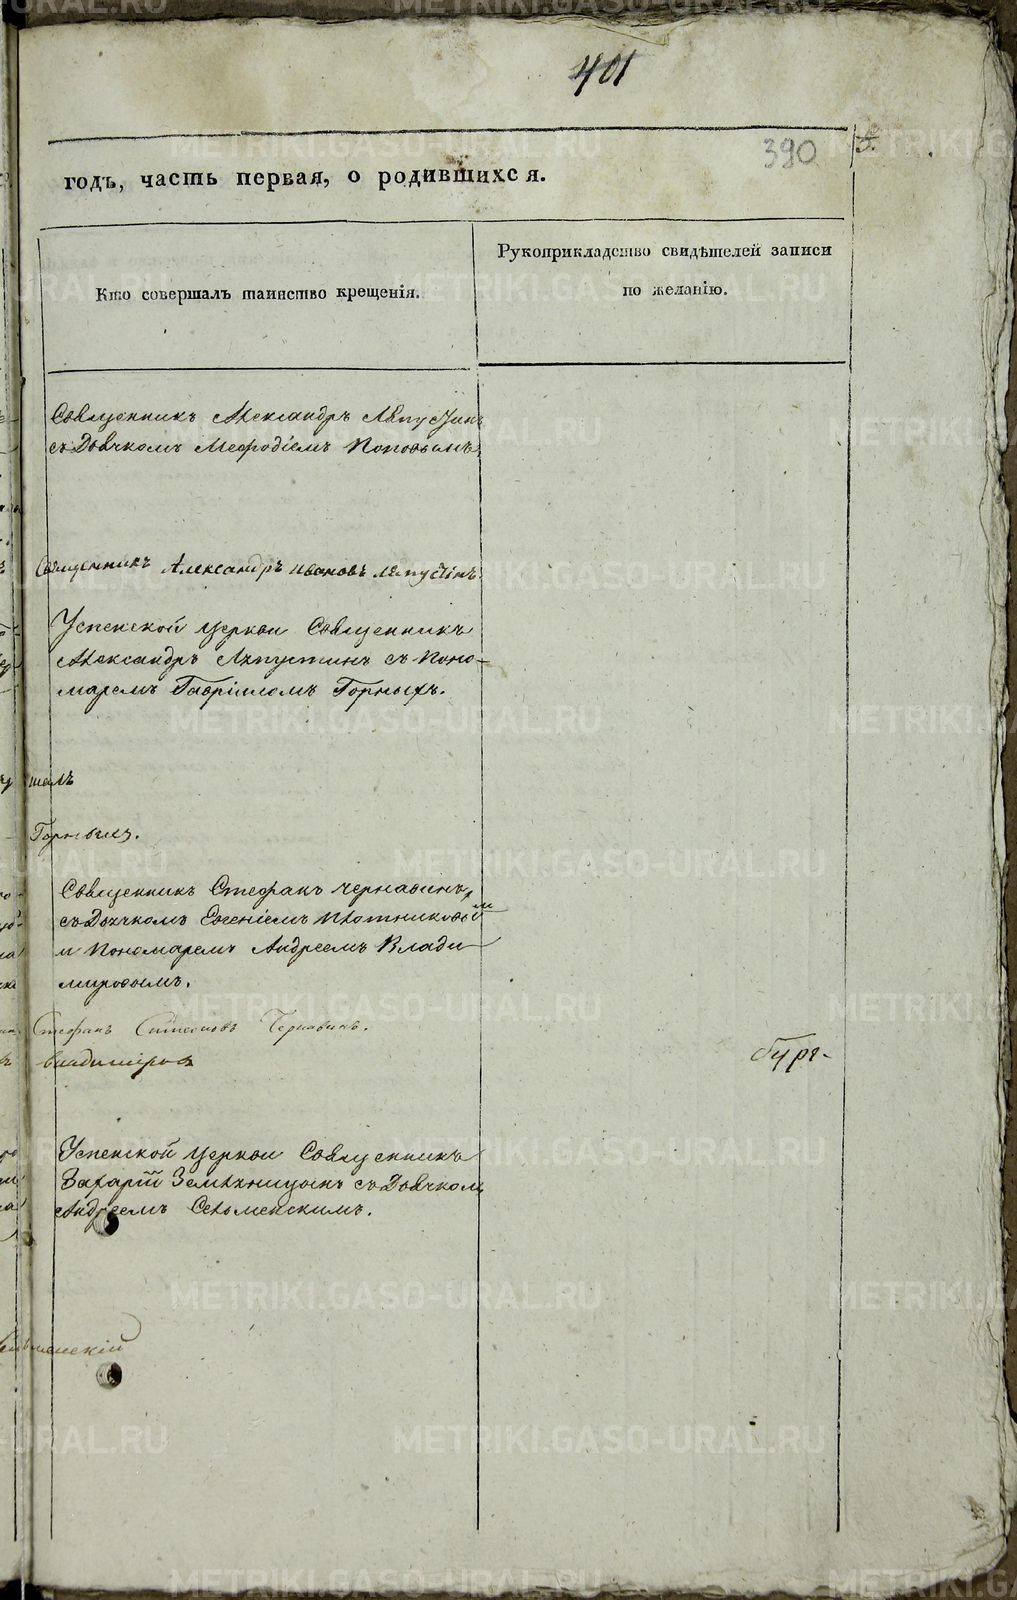 401
390
годъ, часть первая, о родившихся.
Кто совершалъ таинство крещенія.
Рукоприкладство свидѣтелей записи
по желанію.
Священникъ Александръ Ляпустинъ
съ Дьячкомъ Мефодіемъ Поповымъ.
Священникъ Александръ Ивановъ Ляпустинъ.
Успенской церкви Священникъ
Александръ Ляпустинъ съ Поно-
маремъ Гавріиломъ Горныхъ.
Горныхъ.
Священникъ Стефанъ Чернавинъ,
съ Дьячкомъ Евгеніемъ Плотниковымъ
и Пономаремъ Андреемъ Влади-
мировымъ.
Стефанъ Чернавинъ.
Владиміровъ
Успенской церкви Священникъ
Захарій Земляницынъ съ Дьячкомъ
Андреемъ Сельменскимъ.
METRIKI.GASO-URAL.RU